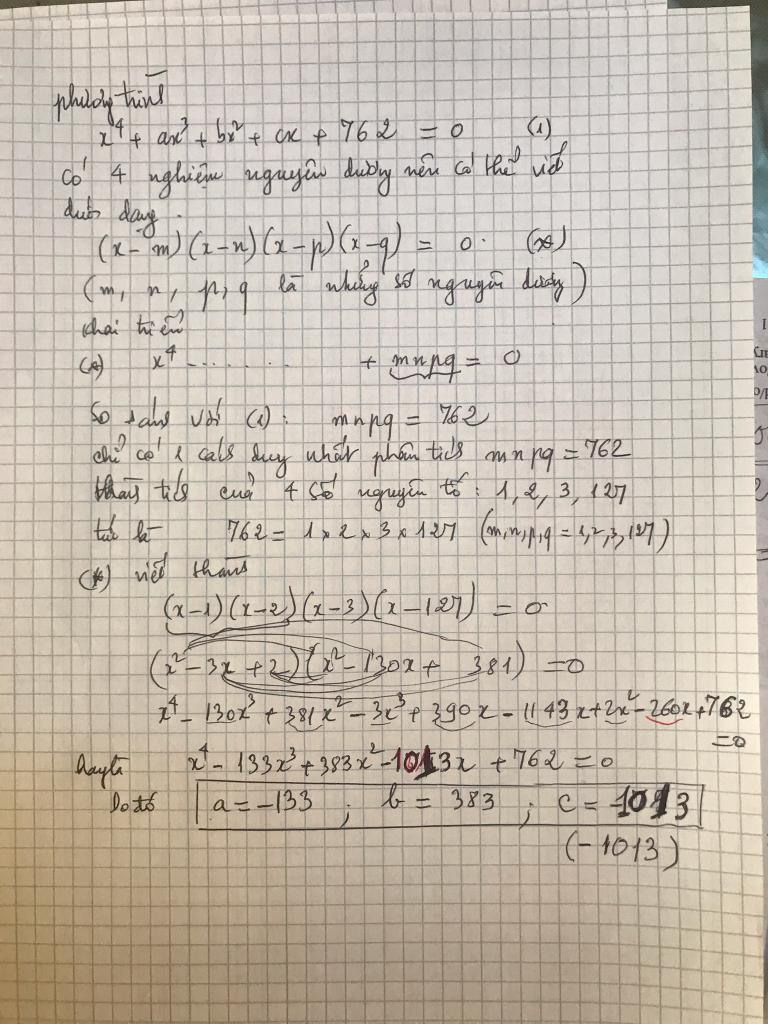 phương trình
x⁴ + ax³ + bx² + cx + 762 = 0 (1)
có 4 nghiệm nguyên dương nên có thể viết
dưới dạng.
(x-m)(x-n)(x-p)(x-q) = 0. (*)
(m, n, p, q là những số nguyên dương)
khai triển
(*) x⁴ - ........ + mnpq = 0
So sánh với (1): mnpq = 762
chỉ có 1 cách duy nhất phân tích mnpq = 762
thành tích của 4 số nguyên tố: 1, 2, 3, 127
tức là 762 = 1 x 2 x 3 x 127 (m,n,p,q = 1,2,3,127)
(*) viết thành
(x-1)(x-2)(x-3)(x-127) = 0
(x² - 3x + 2)(x² - 130x + 381) = 0
x⁴ - 130x³ + 381x² - 3x³ + 390x - 1143x + 2x² - 260x + 762
= 0
hay là x⁴ - 133x³ + 383x² - 1013x + 762 = 0
Do đó a = -133 ; b = 383 ; c = -1013
(-1013)